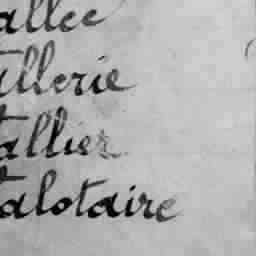 allee
allerie
allier
alotaire